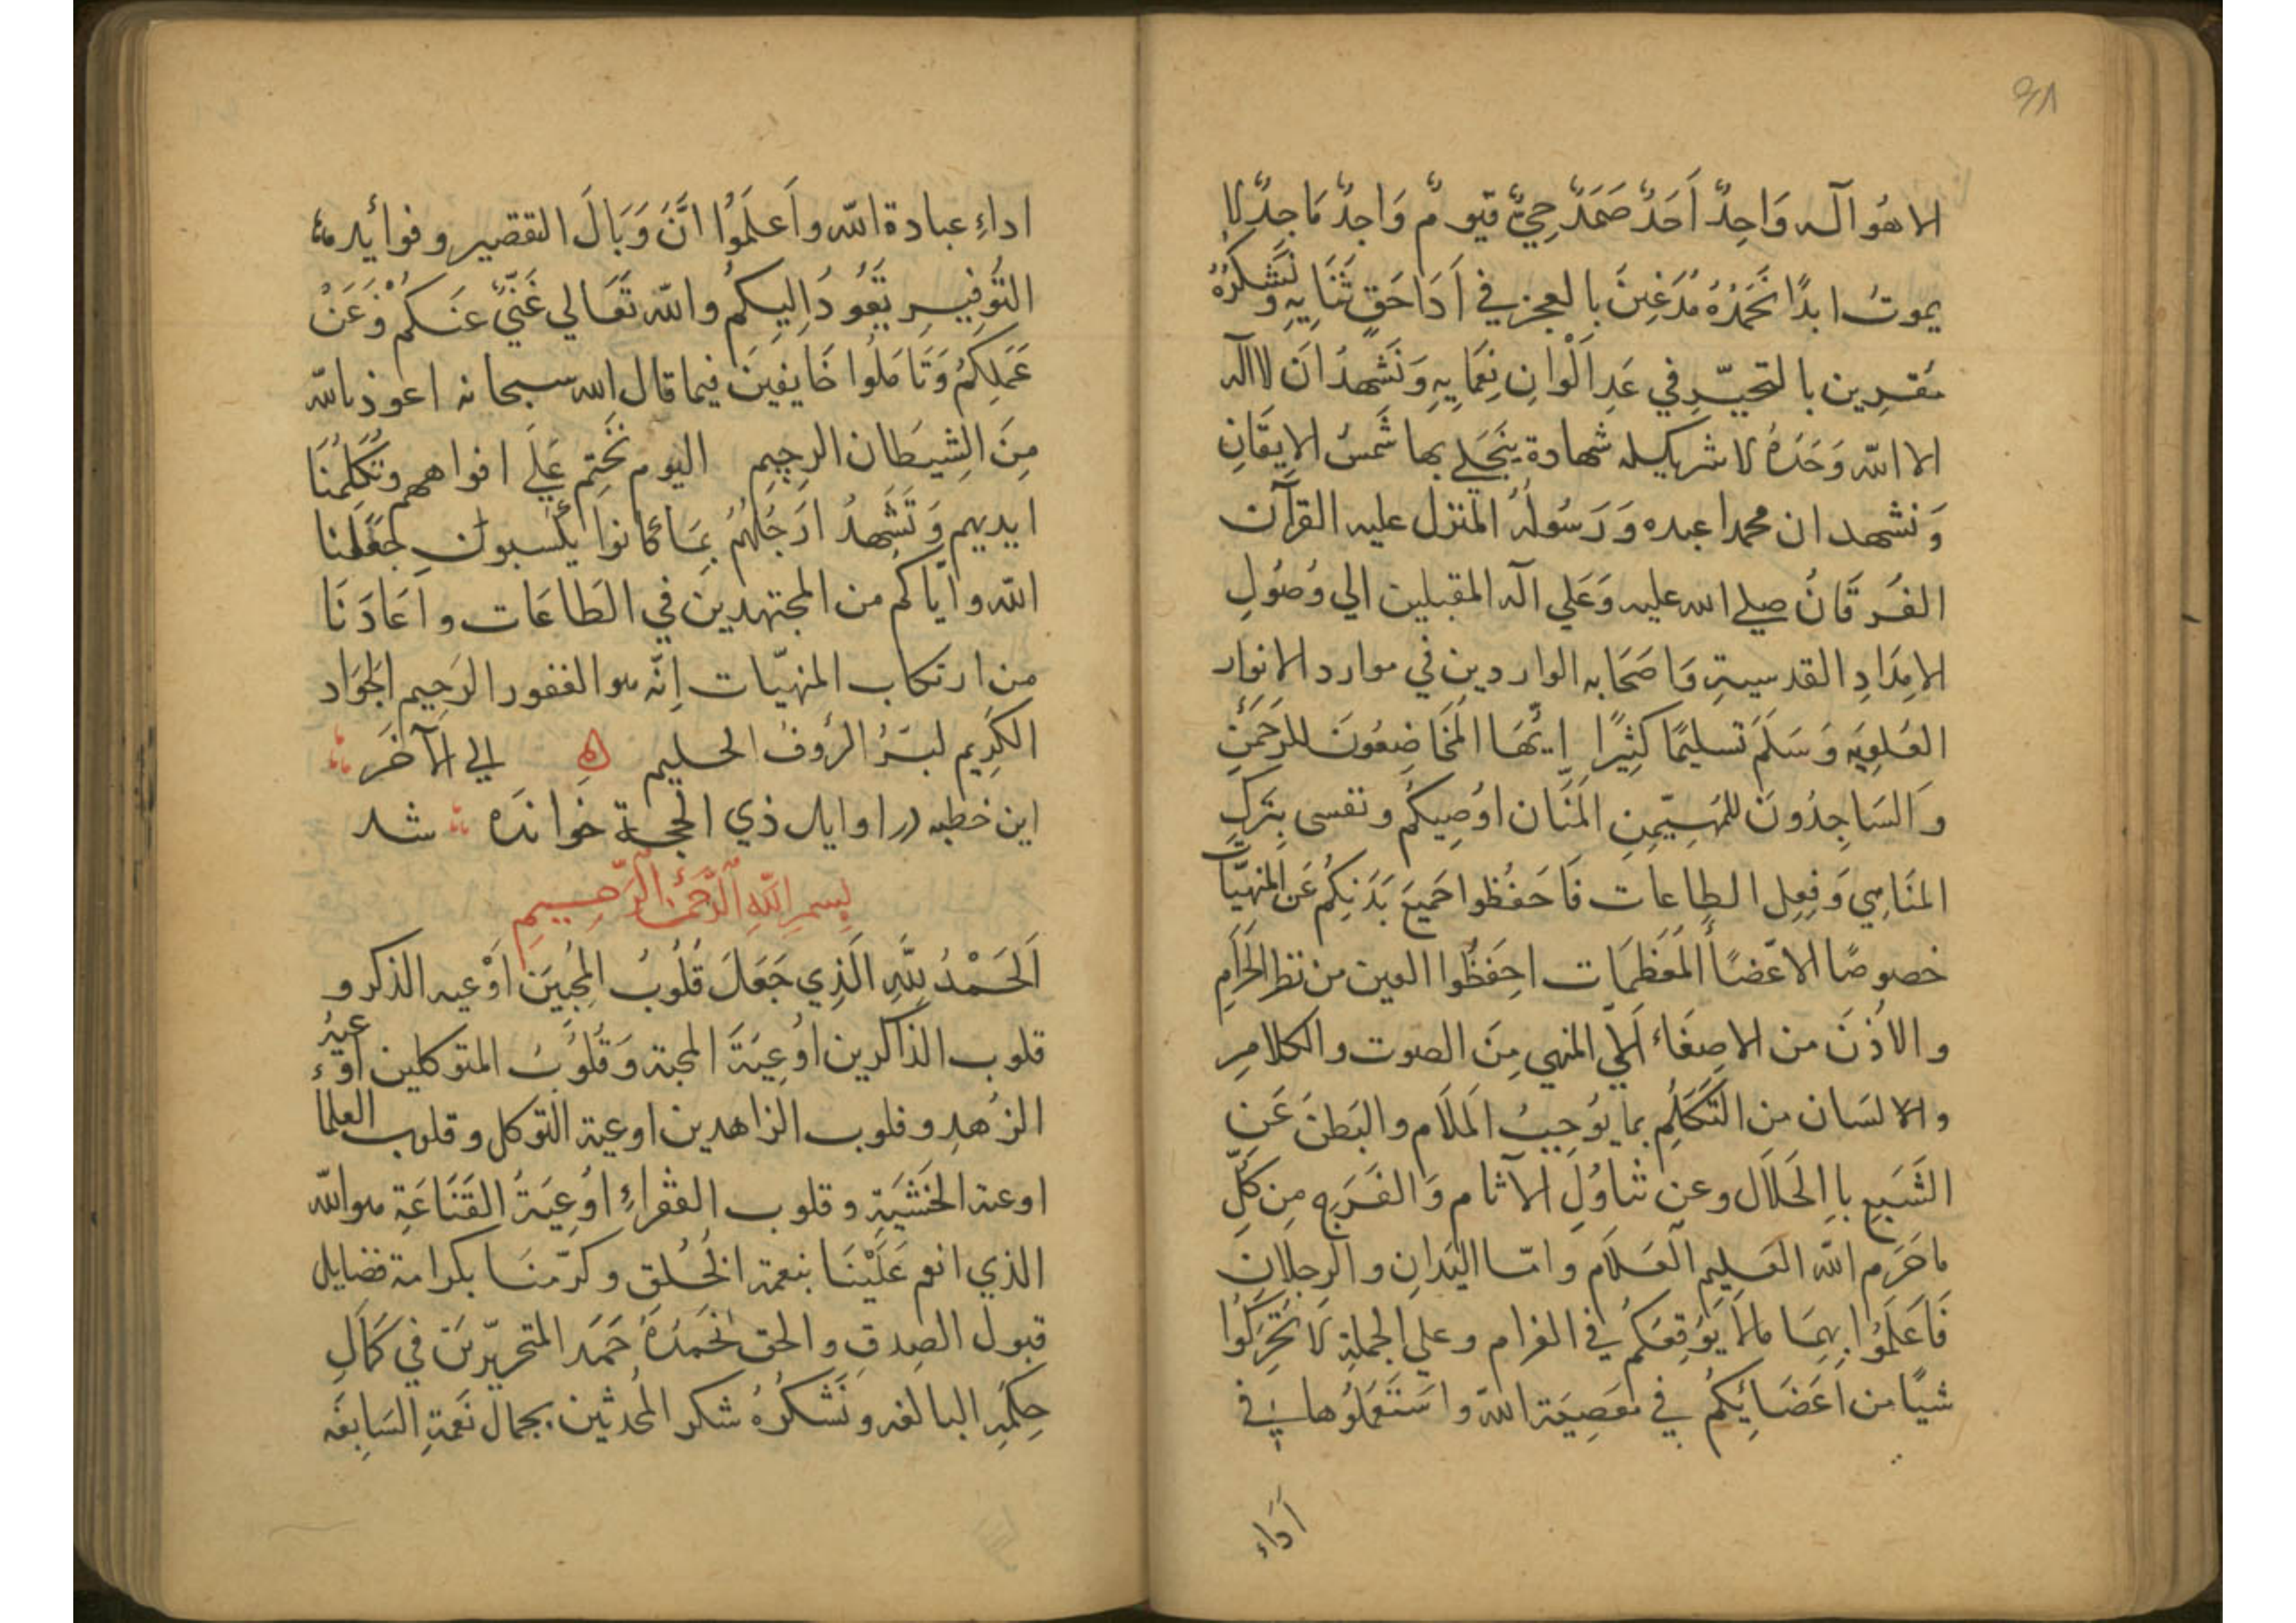 الا هُو آله وَاحِدٌ اَحَدٌ صَمَدٌ حِيٌّ قيومٌ وَاجِدٌ مَاجِدٌ لا
يموتُ ابدًا نَحَمَدُهُ مُدغِينَ بالعجز في اَدَا حَقِ ثَنَايِهِ وَنَشكُرُهُ
مُقرِين بالتحيّرِ في عَدِ اَلْوانِ نِعَمَايِهِ وَنَشَهدُ اَن لا اله
الا الله وَحَدَهُ لا شريكله شهادة يَنجَلي بها شَمسُ الاِيقَانِ
وَنشهد ان محمدا عبده وَرَسُولُهُ المنزل عليه القرآن
الفَرقَانُ صلي الله عليه وَعَلي آله المقبلين الي وُصُولِ
الامِدَادِ القدسيةِ وَاصَحَابه الواردين في موارد الانوار
العُلوِيَه وَسَلَمَ تسليمًا كثِيرًا اَيُّهَا المَخَاضِعُونَ للرَحَمَنِ
وَالسَاجِدُونَ للمُهَيّمِنِ المَنَّان اوُصِيكُم ونفسى بِتَركِ
المنَاهِي وَفِعِل الطاعات فَاحَفُظوا جَميعَ بَدَنِكُم عَن المنهيَّات
خصوصًا الاعّضاً المُعَظمَات احِفَظُوا العين من نظر الحَرامِ
والاُذنَ من الاصِغَاء اَلي المنهي مِنَ الصوت والكلامِ
والالسَان من التَكَلُمِ بما يُوجِبُ المَلَام والبَطنَ عَن
الشَبعِ باِلحَلاَل وعن تناوُلِ الآثام وَالفَرَجِ مِن كُلِّ
ما حَرَم الله العَلِيم العَلام وامّا اليَدانِ والرِجلانِ
فَاعَلَمُوا بِهِمَا مالا يُوَقِعَكُم في الغرام وعلي الجملةِ لَا تُحَرِكُوا
شيًا من اَعَضَائِكُم في مَعَصِيَة الله واسَتَعمَلُوها في
اَدَاء
اداءِ عبادة الله واَعلَمَوُا انَّ وَبَالَ التقصير وفوائد
التَوفِيرِ يَعُودُ اِليكُم والله تَعَالي غَنيٌّ عنكم وَعَنْ
عَمَلِكُم وَتَامَلُوا خَايفِينَ فيما قال الله سبحانه اعوذ بالله
مِنَ الشِيطَان الرجِيمِ اليوم نَختِم عَلَي افواههم وتُكَلِمُنَا
ايديهم وَتَشَهدُ ارَجُلُهُم بِمَا كانوَا يَكسبون جَعَلنا
الله واياكم من المجتهدين في الطَاعَات واَعَادَنَا
من ارتكاب المنهيّات اِنّه هو الغفور الرَحِيم الجوَاد
الكَرِيم لبَرُ الرؤفُ الحليم الي الآخَر
اين خطبه در اوايل ذي الحجة خواندَه شد
بِسمِ اللّهِ الرَّحمنِ الرّحِيمِ
اَلحَمْدُ لِلّهِ الَذِي جَعَلَ قُلُوبُ المُحِبيَن اَوْعيه الذكر و
قلوب الذاكرين اوُعِيَةَ المحبة وَقُلُوبُ المتوكلين اَوعيهُ
الزُهدِ وقلوب الزاهدين اوعية التوكل وقلوب العلما
اوعية الخَشيَةِ وقلوب الفقراءِ اوُعِيَةُ القَنَاعَةِ هو الله
الذي انعم عَلَيْنَا بنعمة الخُلق وكرّمنَا بكرامة فضايل
قبول الصِدقِ والحق نحَمَدُهُ حَمَد المتحيّرين في كَمَالِ
حِكَمِهِ البالغه ونَشَكُرُهُ شكر المُحدثين بجمال نعَمَةِ السَابِغَه